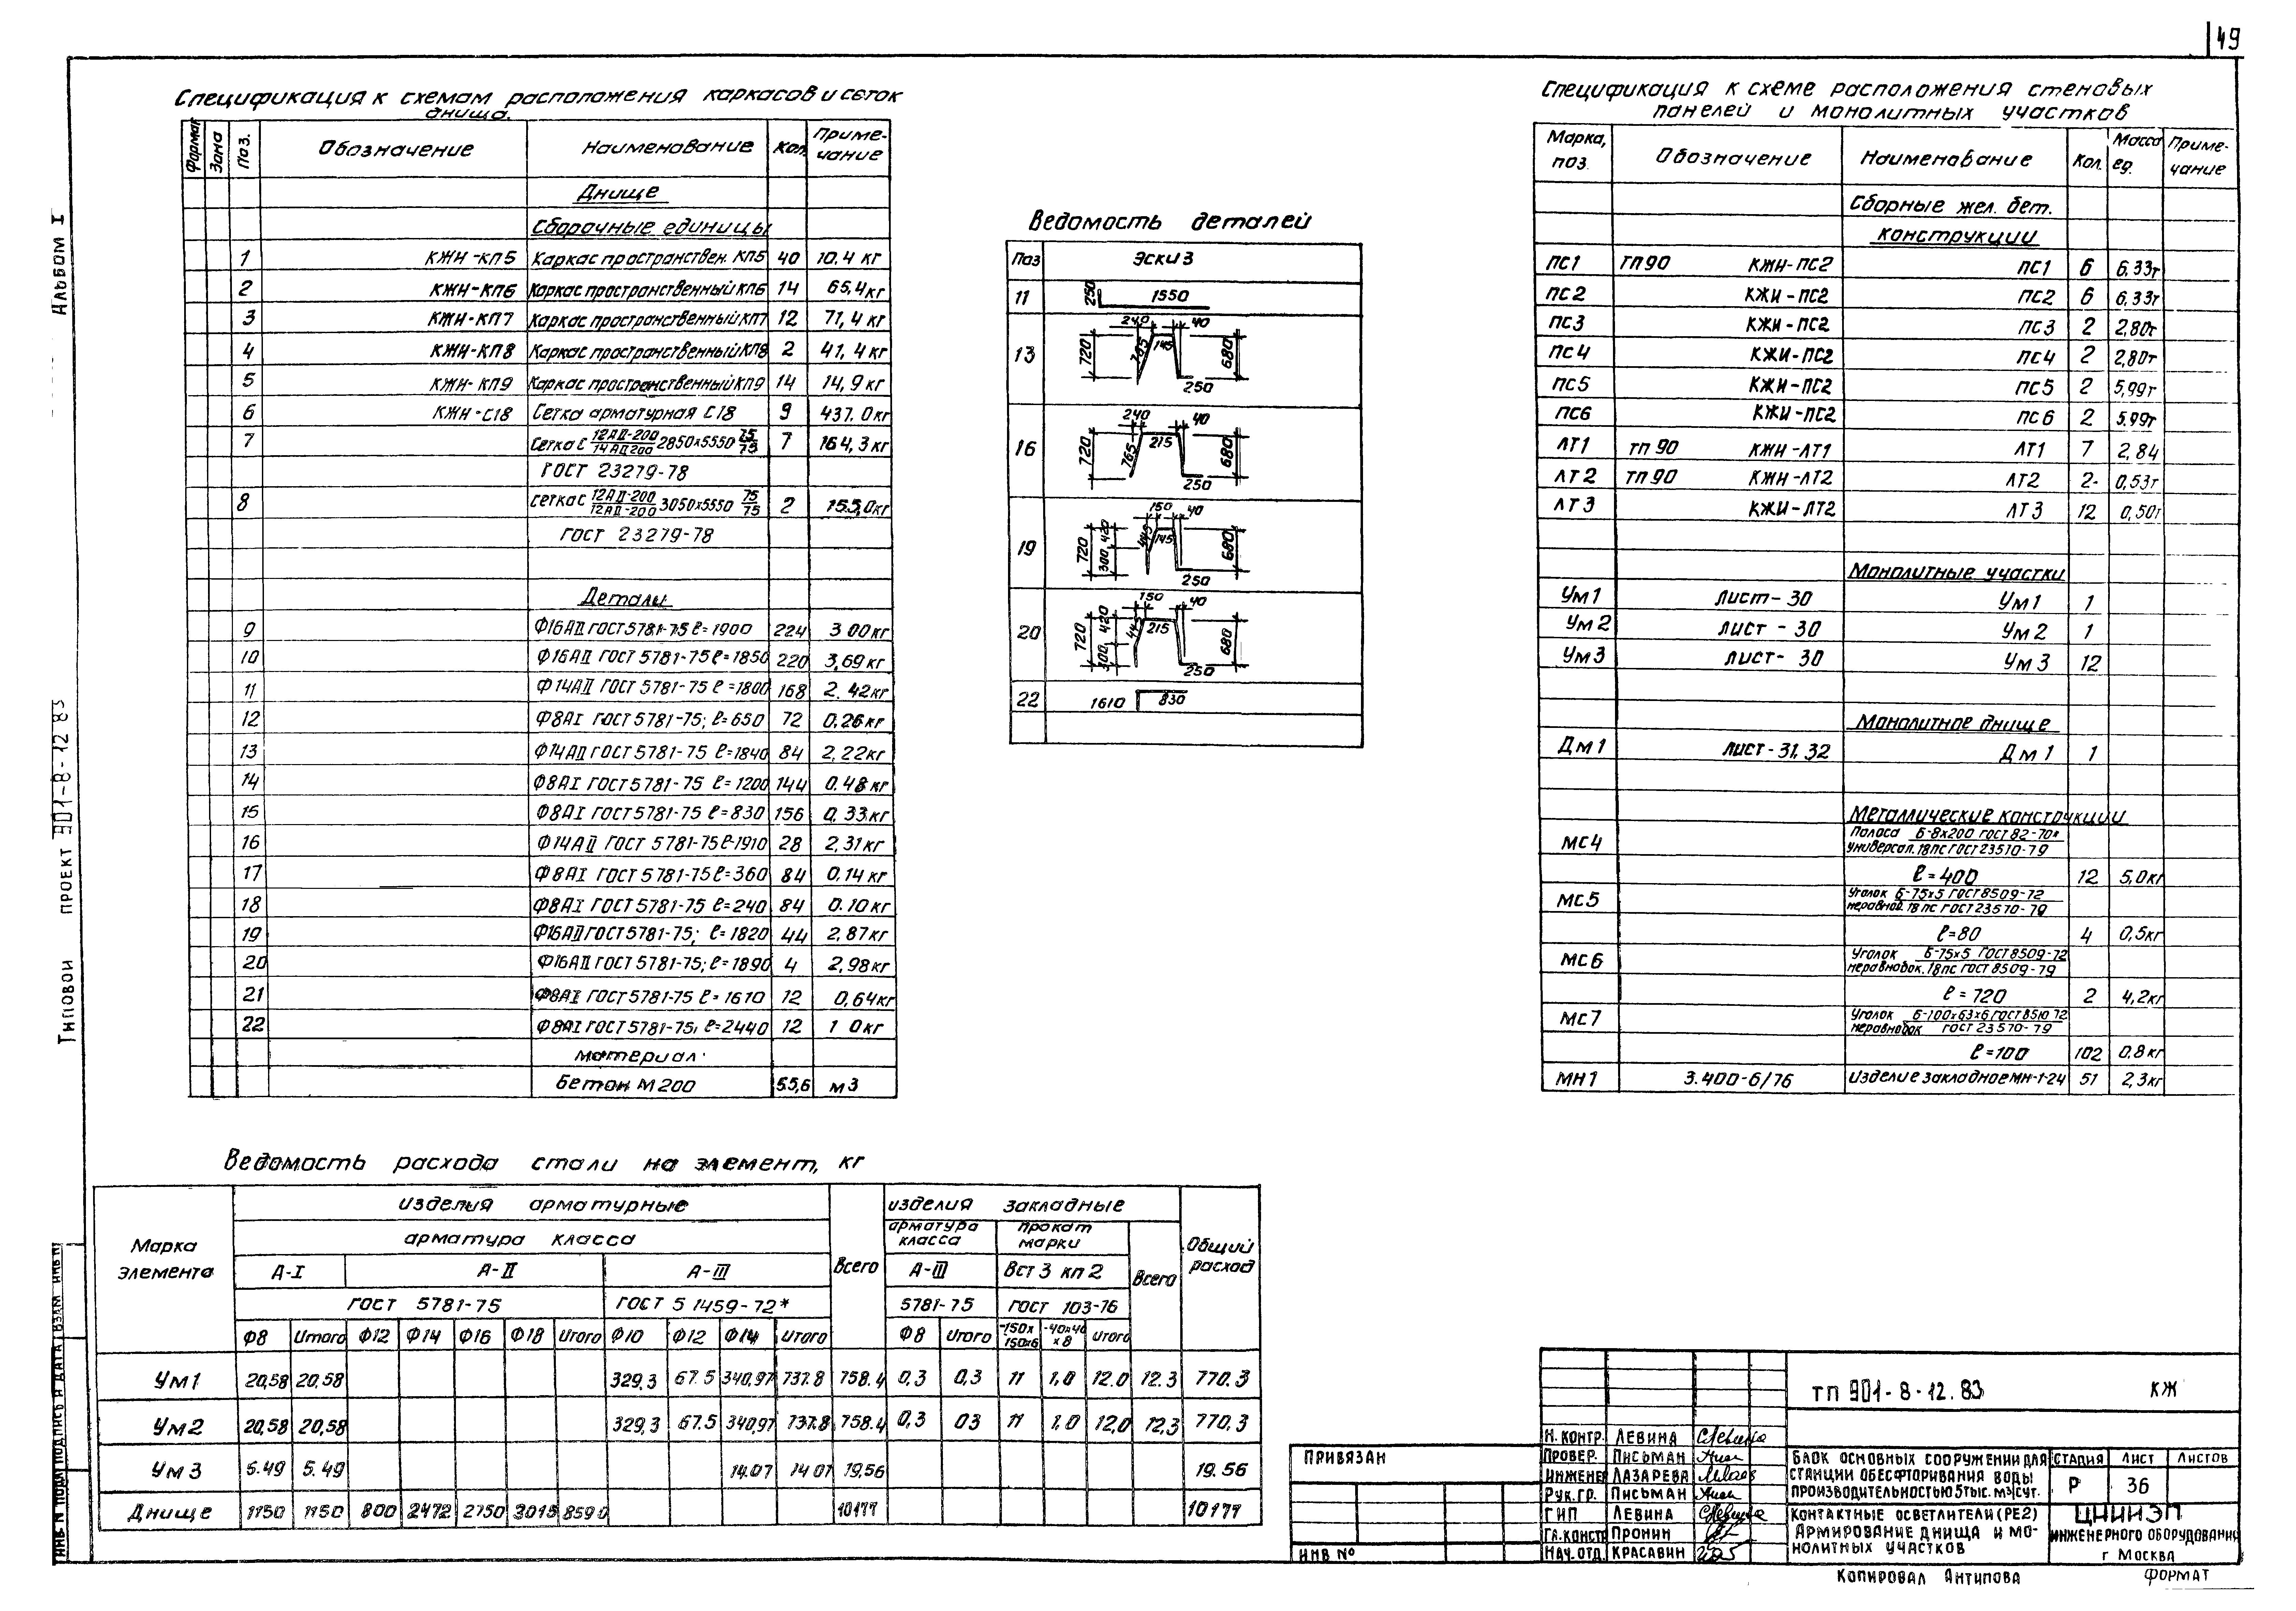 49
Альбом I
Типовой проект 901-8-12.83
Спецификация к схемам расположения каркасов и сеток
днища.
Формат Зона Поз. Обозначение Наименование Кол. Приме-
чание
Днище
Сборочные единицы
1 КЖИ-КП5 Каркас пространствен. КП5 40 10.4 кг
2 КЖИ-КП6 Каркас пространственный КП6 14 65,4 кг
3 КЖИ-КП7 Каркас пространственный КП7 12 71,4 кг
4 КЖИ-КП8 Каркас пространственный КП8 2 41,4 кг
5 КЖИ-КП9 Каркас пространственный КП9 14 14,9 кг
6 КЖИ-С18 Сетка арматурная С18 9 437.0 кг
7 Сетка С 12АII-200/14АII200 2850х5550 75/75 7 164,3 кг
ГОСТ 23279-78
8 Сетка С 12АII-200/12АII-200 3050х5550 75/75 2 155,0 кг
ГОСТ 23279-78
Детали
9 Ф16АII ГОСТ 5781-75 ℓ=1900 224 3 00 кг
10 Ф16АII ГОСТ 5781-75 ℓ=1850 220 3,69 кг
11 Ф14АII ГОСТ 5781-75 ℓ=1800 168 2.42 кг
12 Ф8АI ГОСТ 5781-75; ℓ=650 72 0,26 кг
13 Ф14АII ГОСТ 5781-75 ℓ=1840 84 2,22 кг
14 Ф8АI ГОСТ 5781-75 ℓ=1200 144 0.48 кг
15 Ф8АI ГОСТ 5781-75 ℓ=830 156 0,33 кг
16 Ф14АII ГОСТ 5781-75 ℓ-1910 28 2,31 кг
17 Ф8АI ГОСТ 5781-75 ℓ=360 84 0.14 кг
18 Ф8АI ГОСТ 5781-75 ℓ=240 84 0.10 кг
19 Ф16АII ГОСТ 5781-75; ℓ=1820 44 2,87 кг
20 Ф16АII ГОСТ 5781-75; ℓ=1890 4 2,98 кг
21 Ф8АI ГОСТ 5781-75 ℓ=1610 12 0,64 кг
22 Ф8АI ГОСТ 5781-75, ℓ=2440 12 1 0 кг
материал
Бетон М200 55,6 м3
Ведомость деталей
Поз Эскиз
11 250 1550
13 240 40 720 765 145 680 250
16 240 40 720 765 215 680 250
19 150 40 720 300 420 445 145 680 250
20 150 40 720 300 420 445 215 680 250
22 1610 830
Спецификация к схеме расположения стеновых
панелей и монолитных участков
Марка, поз. Обозначение Наименование Кол. Масса ед. Приме-
чание
Сборные жел. бет.
конструкции
ПС1 ТП90 КЖИ-ПС2 ПС1 6 6,33т
ПС2 КЖИ-ПС2 ПС2 6 6,33т
ПС3 КЖИ-ПС2 ПС3 2 2,80т
ПС4 КЖИ-ПС2 ПС4 2 2,80т
ПС5 КЖИ-ПС2 ПС5 2 5,99т
ПС6 КЖИ-ПС2 ПС6 2 5.99т
ЛТ1 ТП90 КЖИ-ЛТ1 ЛТ1 7 2,84
ЛТ2 ТП90 КЖИ-ЛТ2 ЛТ2 2 0,53т
ЛТ3 КЖИ-ЛТ2 ЛТ3 12 0,50т
Монолитные участки
Ум1 Лист-30 Ум1 1
Ум2 Лист-30 Ум2 1
Ум3 Лист-30 Ум3 12
Монолитное днище
Дм1 Лист-31, 32 Дм1 1
Металлические конструкции
МС4 Полоса Б-8х200 ГОСТ 82-70*
универсал. 18пс ГОСТ 23570-79
ℓ=400 12 5,0кг
МС5 Уголок Б-75х5 ГОСТ 8509-72
неравноб. 18пс ГОСТ 23570-79
ℓ=80 4 0,5кг
МС6 Уголок Б-75х5 ГОСТ 8509-72
неравнобок. 18пс ГОСТ 8509-79
ℓ=720 2 4,2кг
МС7 Уголок Б-100х63х6 ГОСТ 8510 72
неравнобок ГОСТ 23570-79
ℓ=100 102 0,8кг
МН1 3.400-6/76 Изделие закладное МН-1-24 51 2,3кг
Ведомость расхода стали на элемент, кг
Марка элемента Изделия арматурные Всего Изделия закладные Общий расход
арматура класса арматура класса прокат марки Всего
А-I А-II А-III А-III Вст 3 кп 2
ГОСТ 5781-75 ГОСТ 5 1459-72* 5781-75 ГОСТ 103-76
Ф8 Итого Ф12 Ф14 Ф16 Ф18 Итого Ф10 Ф12 Ф14 Итого Ф8 Итого -150х150х6 -40х40х8 Итого
Ум1 20,58 20,58 329,3 67.5 340,97 737.8 758.4 0,3 0,3 11 1,0 12.0 12.3 770.3
Ум2 20,58 20,58 329,3 67.5 340,97 737.8 758.4 0,3 03 11 1,0 12,0 12,3 770,3
Ум3 5.49 5.49 14.07 14 07 19,56 19.56
Днище 1150 1150 800 2472 2750 10177 10177
Привязан
Инв №
Н. контр. Левина
Провер. Письман
Инженер Лазарева
Рук. гр. Письман
ГИП Левина
Гл. констр Пронин
Нач. отд. Красавин
ТП 901-8-12.83 КЖ
Блок основных сооружений для
станции обесфторивания воды
производительностью 5 тыс. м3/сут.
Стадия Лист Листов
Р 36
Контактные осветлители (РЕ2)
Армирование днища и мо-
нолитных участков
ЦНИИЭП
инженерного оборудования
г Москва
Копировал Антипова Формат
Инв. N подл Подпись и дата Взам инв N